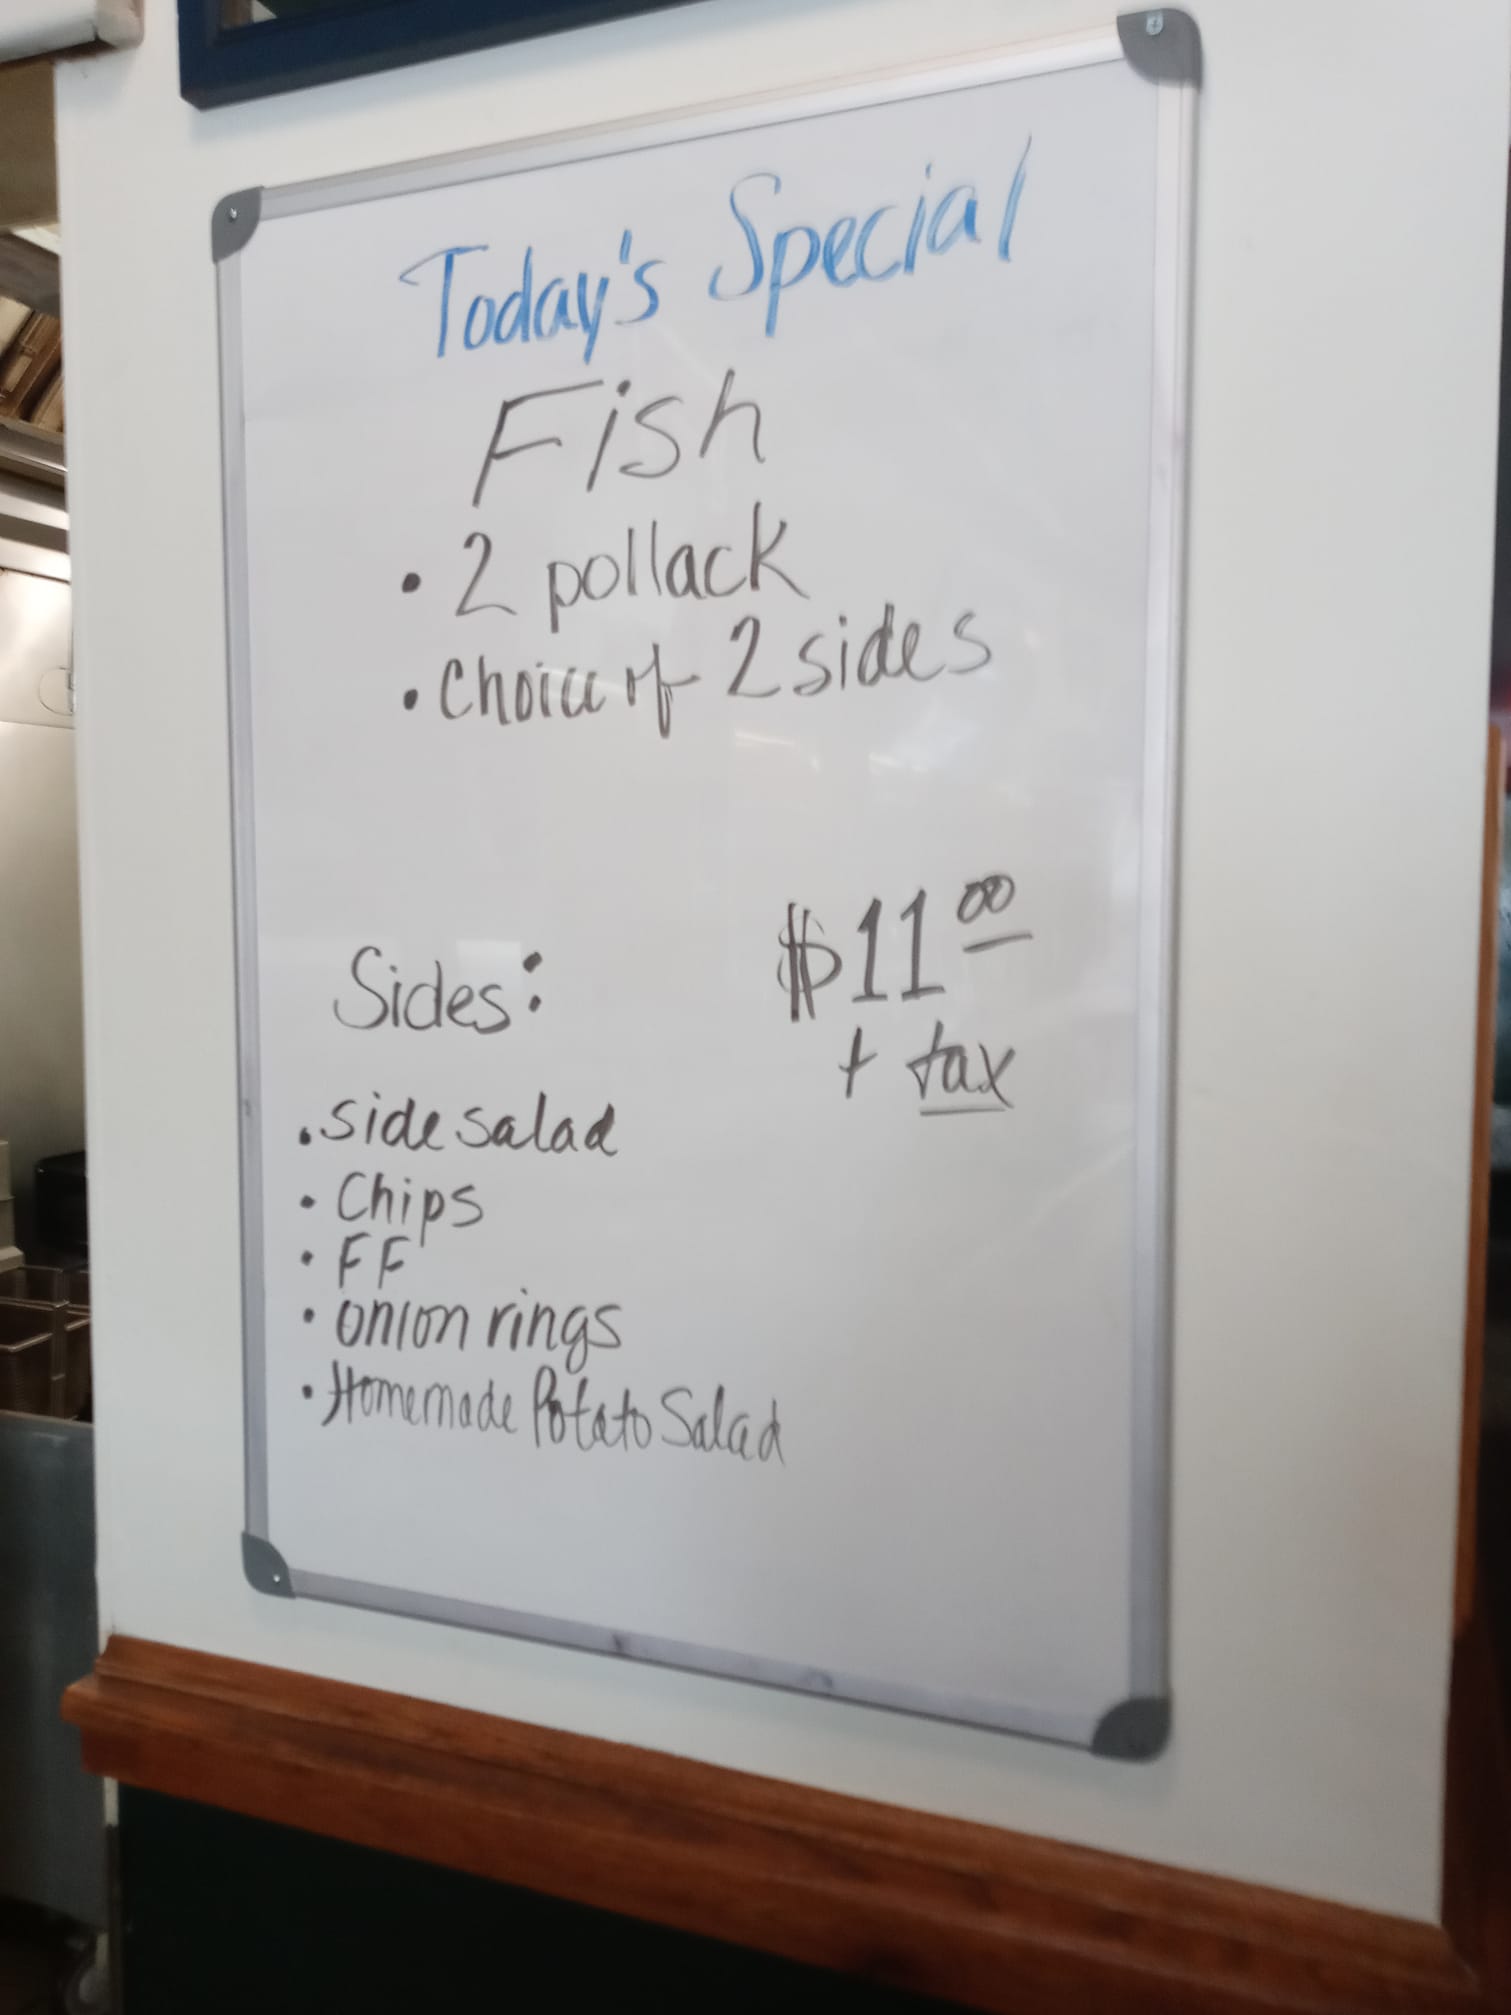 Today's Special
Fish
• 2 pollack
• Choice of 2 sides
$11 00
+ tax
Sides:
• side salad
• Chips
• FF
• onion rings
• Homemade Potato Salad